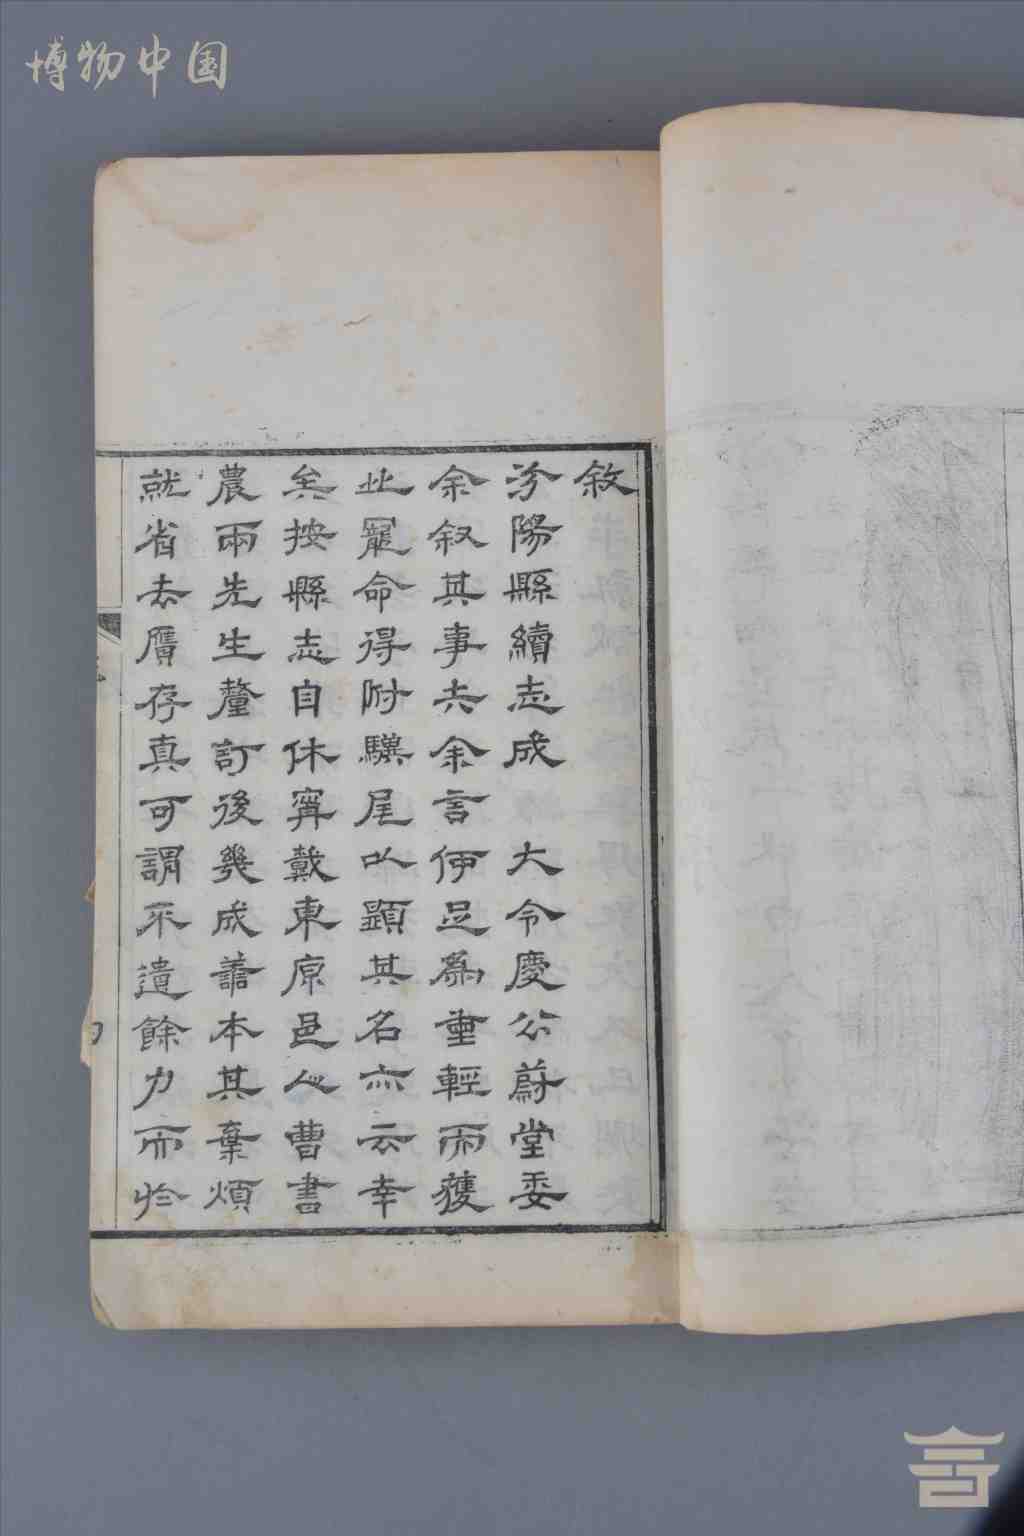 博物中国
敘
汾陽縣續志成　大令慶公蔚堂委
余叙其事夫余言何足為重輕而獲
此寵命得附驥尾以顯其名亦云幸
矣按縣志自休寧戴東原邑人曹書
農兩先生釐訂後幾成善本其棄煩
就省去贗存真可謂不遺餘力而於